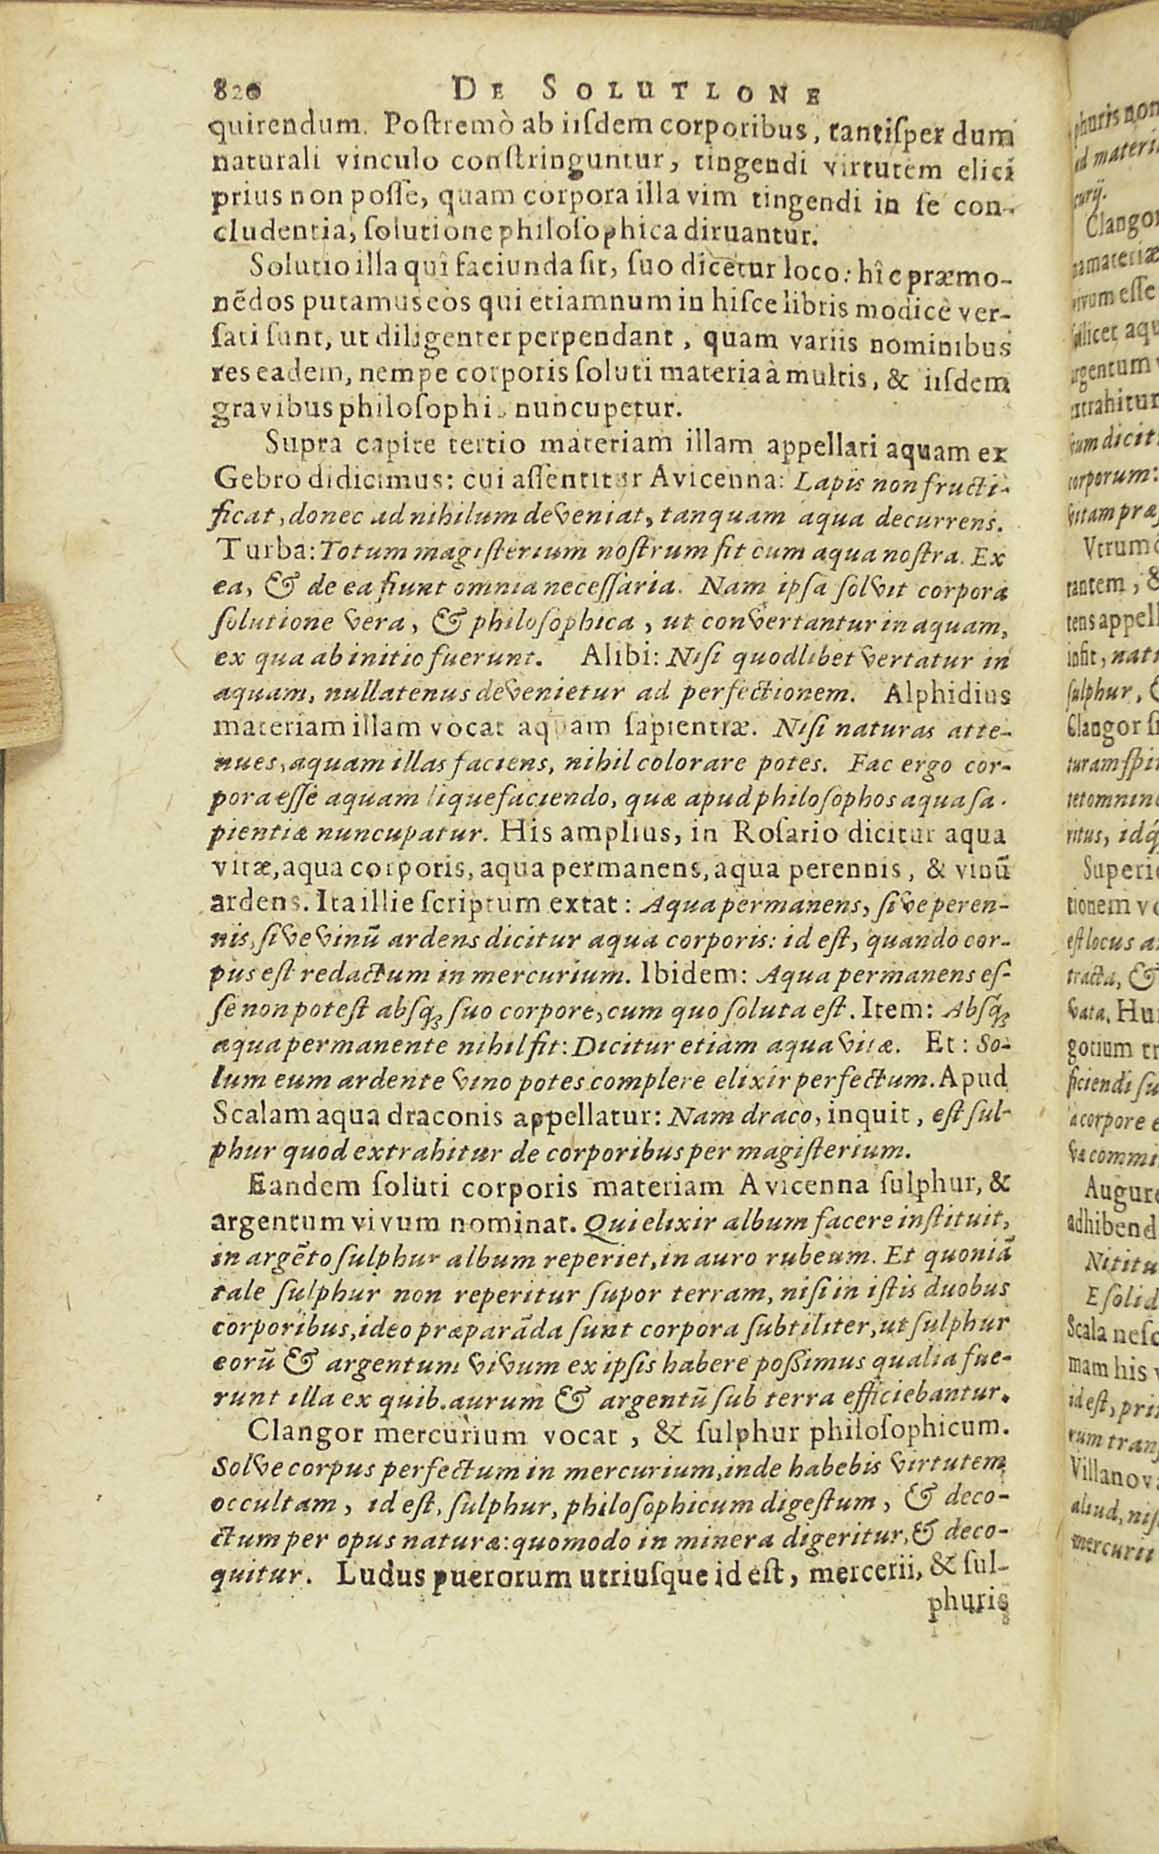 820 DE SOLUTLONE
quirendum. Postremò ab iisdem corporibus, tantisper dum
naturali vinculo constringuntur, tingendi virtutem elici
prius non posse, quam corpora illa vim tingendi in se con-
cludentia, solutione philosophica diruantur.
Solutio illa quî faciunda sit, suo dicetur loco: hîc præmo-
nẽdos putamus eos qui etiamnum in hisce libris modicè ver-
sati sunt, ut diligenter perpendant, quam variis nominibus
res eadem, nempe corporis soluti materia à multis, & iisdem
gravibus philosophis nuncupetur.
Supra capite tertio materiam illam appellari aquam ex
Gebro didicimus: cui assentitur Avicenna: Lapis non fructi-
ficat, donec ad nihilum deveniat, tanquam aqua decurrens.
Turba: Totum magisterium nostrum fit cum aqua nostra. Ex
ea, & de ea fiunt omnia necessaria. Nam ipsa solvit corpora
solutione vera, & philosophica, ut convertantur in aquam,
ex qua ab initio fuerunt. Alibi: Nisi quodlibet vertatur in
aquam, nullatenus devenietur ad perfectionem. Alphidius
materiam illam vocat aquam sapientiæ. Nisi naturas atte-
nues, aquam illas faciens, nihil colorare potes. Fac ergo cor-
pora esse aquam liquefaciendo, quæ apud philosophos aqua sa-
pientiæ nuncupatur. His amplius, in Rosario dicitur aqua
vitæ, aqua corporis, aqua permanens, aqua perennis, & vinũ
ardens. Ita illie scriptum extat: Aqua permanens, sive peren-
nis, sive vinũ ardens dicitur aqua corporis: id est, quando cor-
pus est redactum in mercurium. Ibidem: Aqua permanens es-
se non potest absq; suo corpore, cum quo soluta est. Item: Absq;
aqua permanente nihil fit: Dicitur etiam aqua vitæ. Et: So-
lum eum ardente vino potes complere elixir perfectum. Apud
Scalam aqua draconis appellatur: Nam draco, inquit, est sul-
phur quod extrahitur de corporibus per magisterium.
Eandem soluti corporis materiam Avicenna sulphur, &
argentum vivum nominat. Qui elixir album facere instituit,
in argẽto sulphur album reperiet, in auro rubeum. Et quoniã
tale sulphur non reperitur supor terram, nisi in istis duobus
corporibus, ideo præparãda sunt corpora subtiliter, ut sulphur
eorũ & argentum vivum ex ipsis habere possimus qualia fue-
runt illa ex quib. aurum & argentũ sub terra efficiebantur.
Clangor mercurium vocat, & sulphur philosophicum.
Solve corpus perfectum in mercurium, inde habebis virtutem
occultam, id est, sulphur, philosophicum digestum, & deco-
ctum per opus naturæ: quomodo in minera digeritur, & deco-
quitur. Ludus puerorum utriusque id est, mercerii, & sul-
phuris